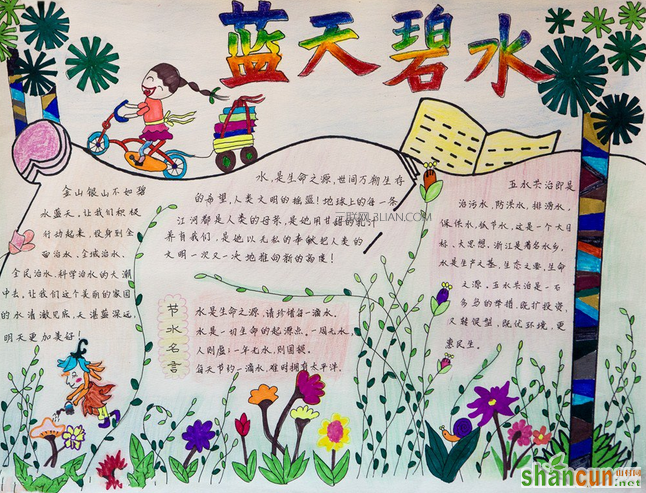 蓝天碧水
金山银山不如碧
水蓝天。让我们积极
行动起来,投身到全
面治水、全域治水、
全民治水、科学治水的大潮
中去。让我们这个美丽的家园
的水清澈见底,天湛蓝深远,
明天更加美好!
水,是生命之源,世间万物生存
的希望,人类文明的摇篮!地球上的每一条
江河都是人类的母亲,是他用甘甜的乳汁
养育我们,是他以无私的奉献把人类的
文明一次又一次地推向新的高度!
三联网3LIAN.COM
节水名言
水是生命之源,请珍惜每一滴水。
水是一切生命的起源点。一周无水,
人则虚;一年无水,则国损。
每天节约一滴水,难时拥有太平洋。
五水共治即是
治污水、防洪水、排涝水、
保供水、抓节水。这是一个大目
标、大思想,浙江是著名水乡,
水是生产之基,生态之要,生命
之源。五水共治是一石
多鸟的举措,既扩投资
又转促型,既优环境、更
惠民生。
shancun
山村网
.net